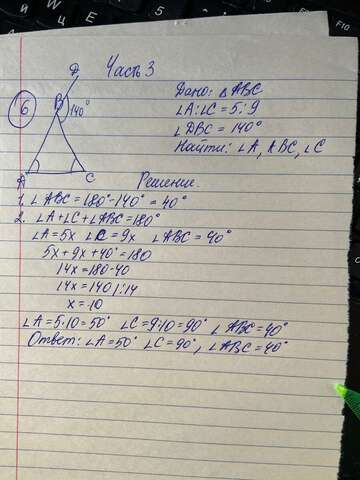 Часть 3
D
6
B
140°
A
C
Дано: △ABC
∠A:∠C = 5:9
∠DBC = 140°
Найти: ∠A, ∠BC, ∠C
Решение.
1. ∠ABC = 180° - 140° = 40°
2. ∠A + ∠C + ∠ABC = 180°
∠A = 5x ∠C = 9x ∠ABC = 40°
5x + 9x + 40° = 180
14x = 180 - 40
14x = 140 | : 14
x = 10
∠A = 5·10 = 50° ∠C = 9·10 = 90° ∠ABC = 40°
Ответ: ∠A = 50° ∠C = 90°, ∠ABC = 40°
F9
F10